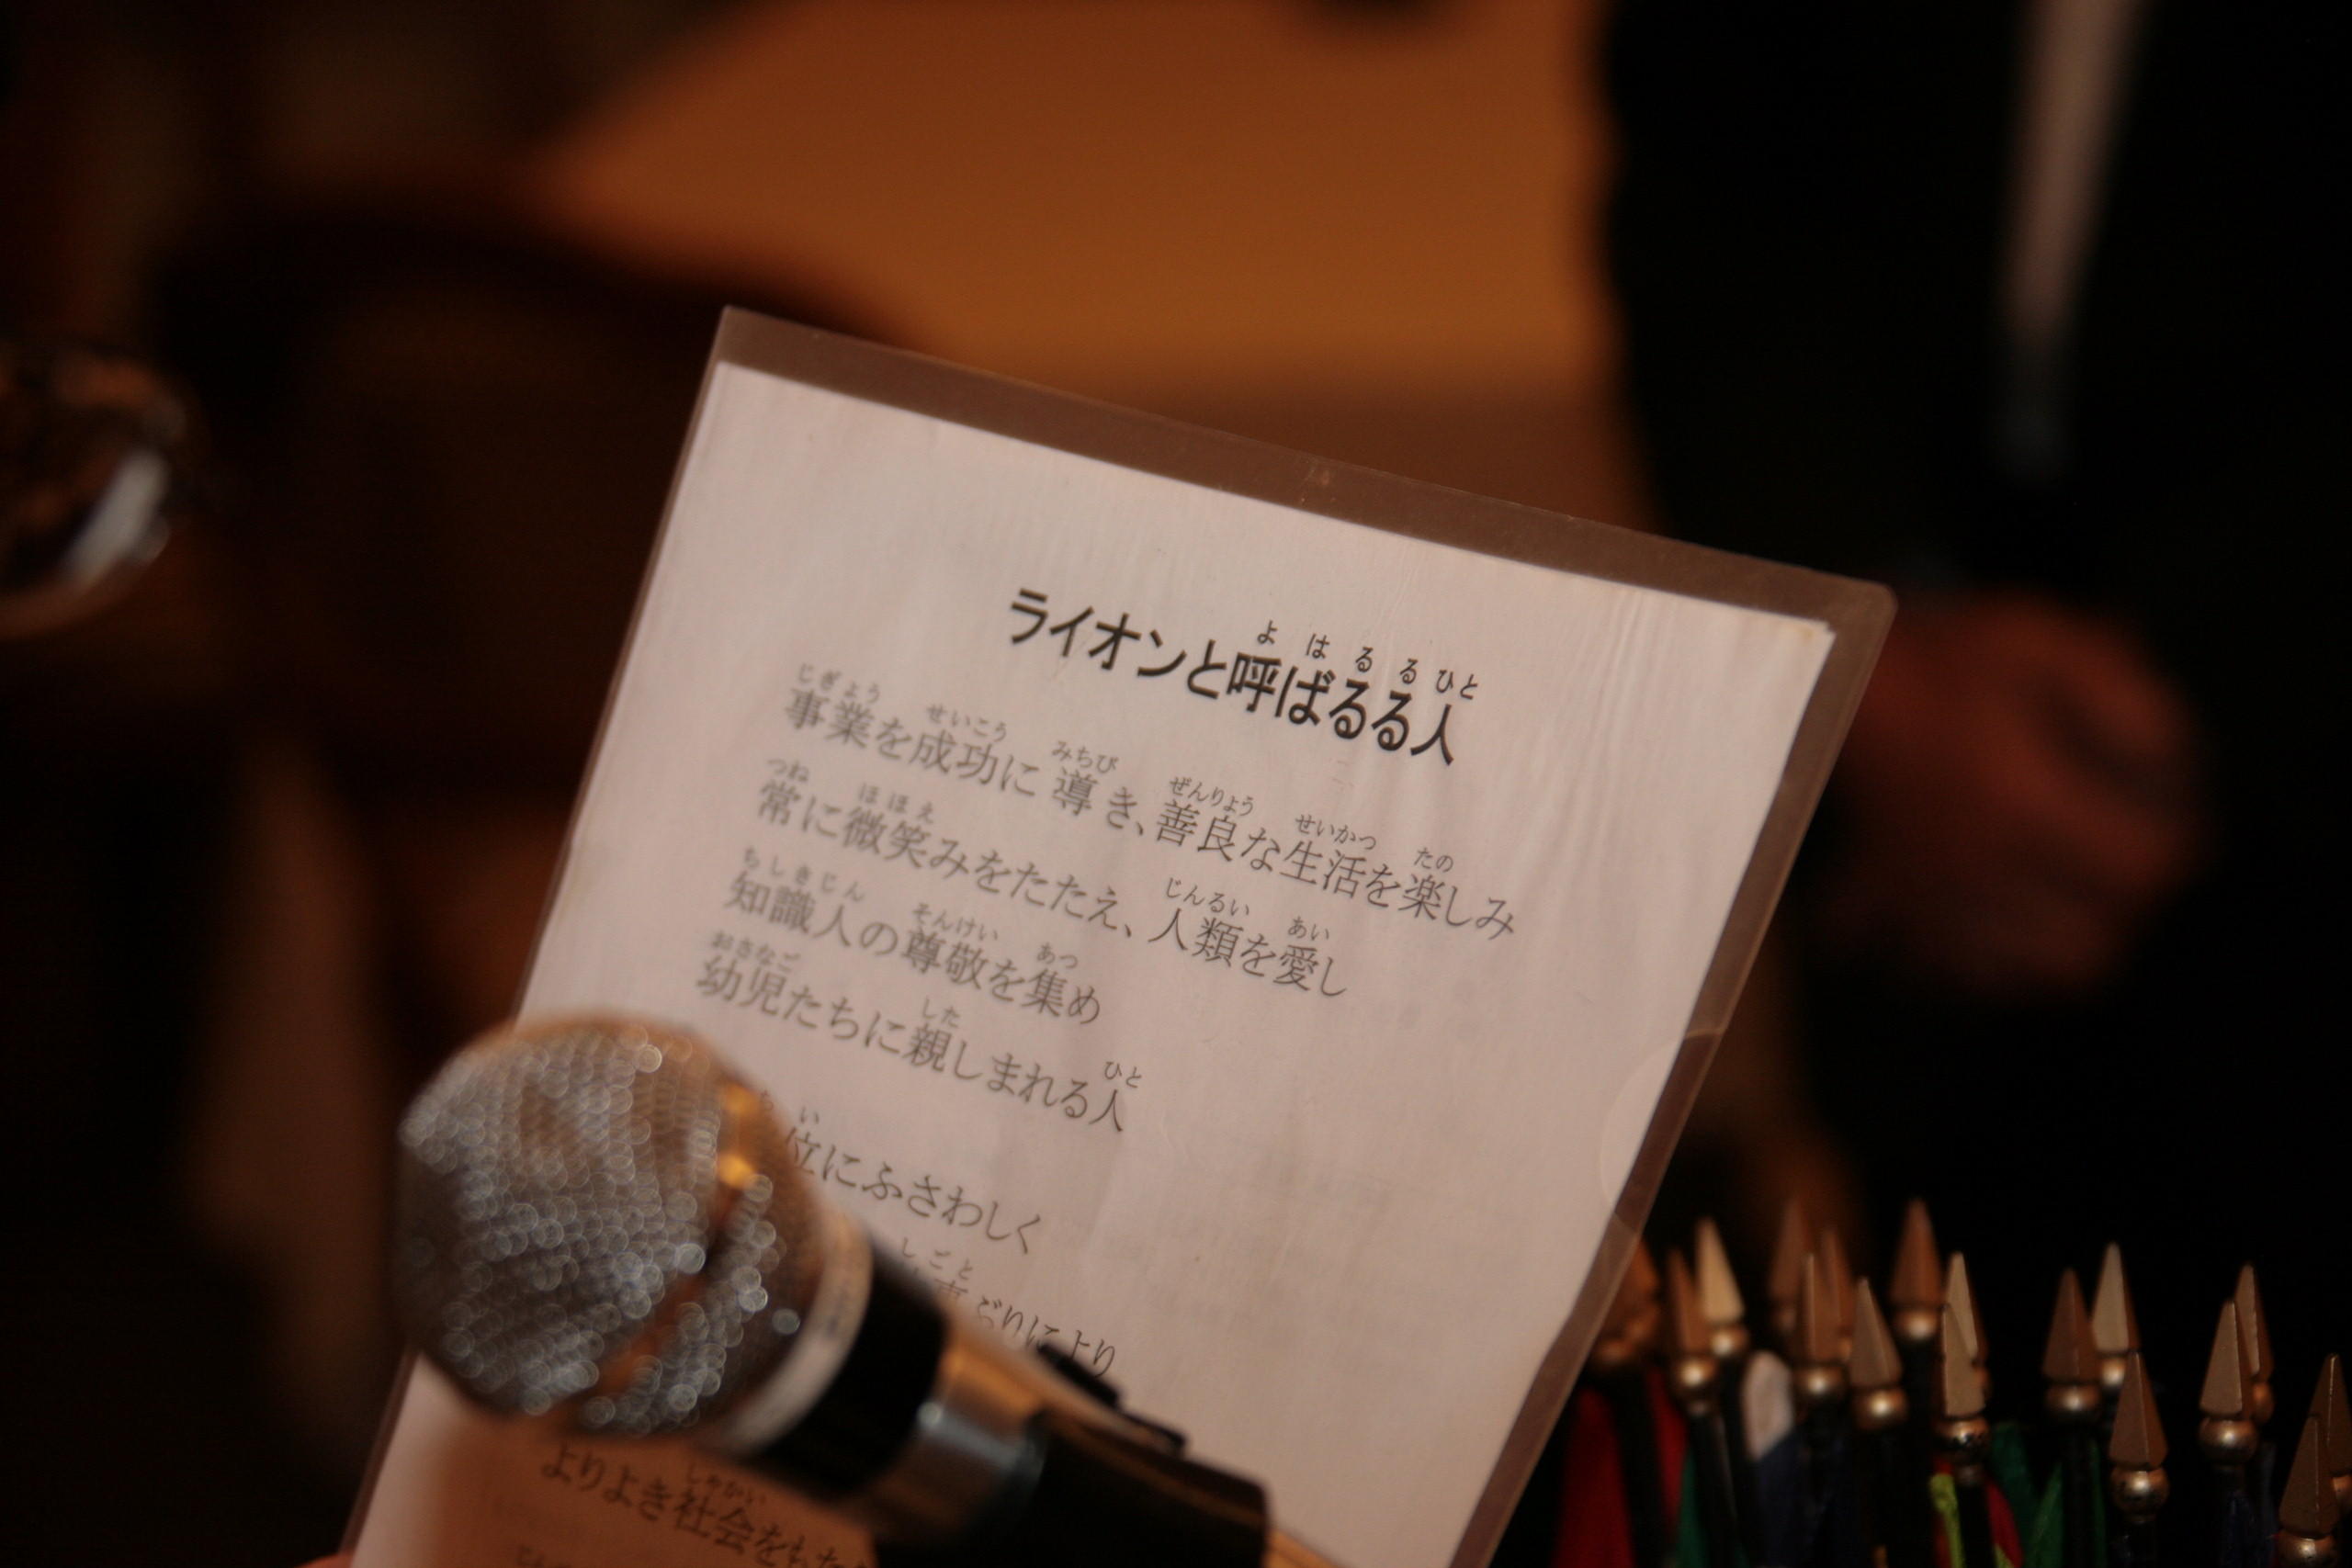 ライオンと呼ばるる人
事業を成功に導き、善良な生活を楽しみ
常に微笑みをたたえ、人類を愛し
知識人の尊敬を集め
幼児たちに親しまれる人
位にふさわしく
ぶりにより
よりよき社会をもた